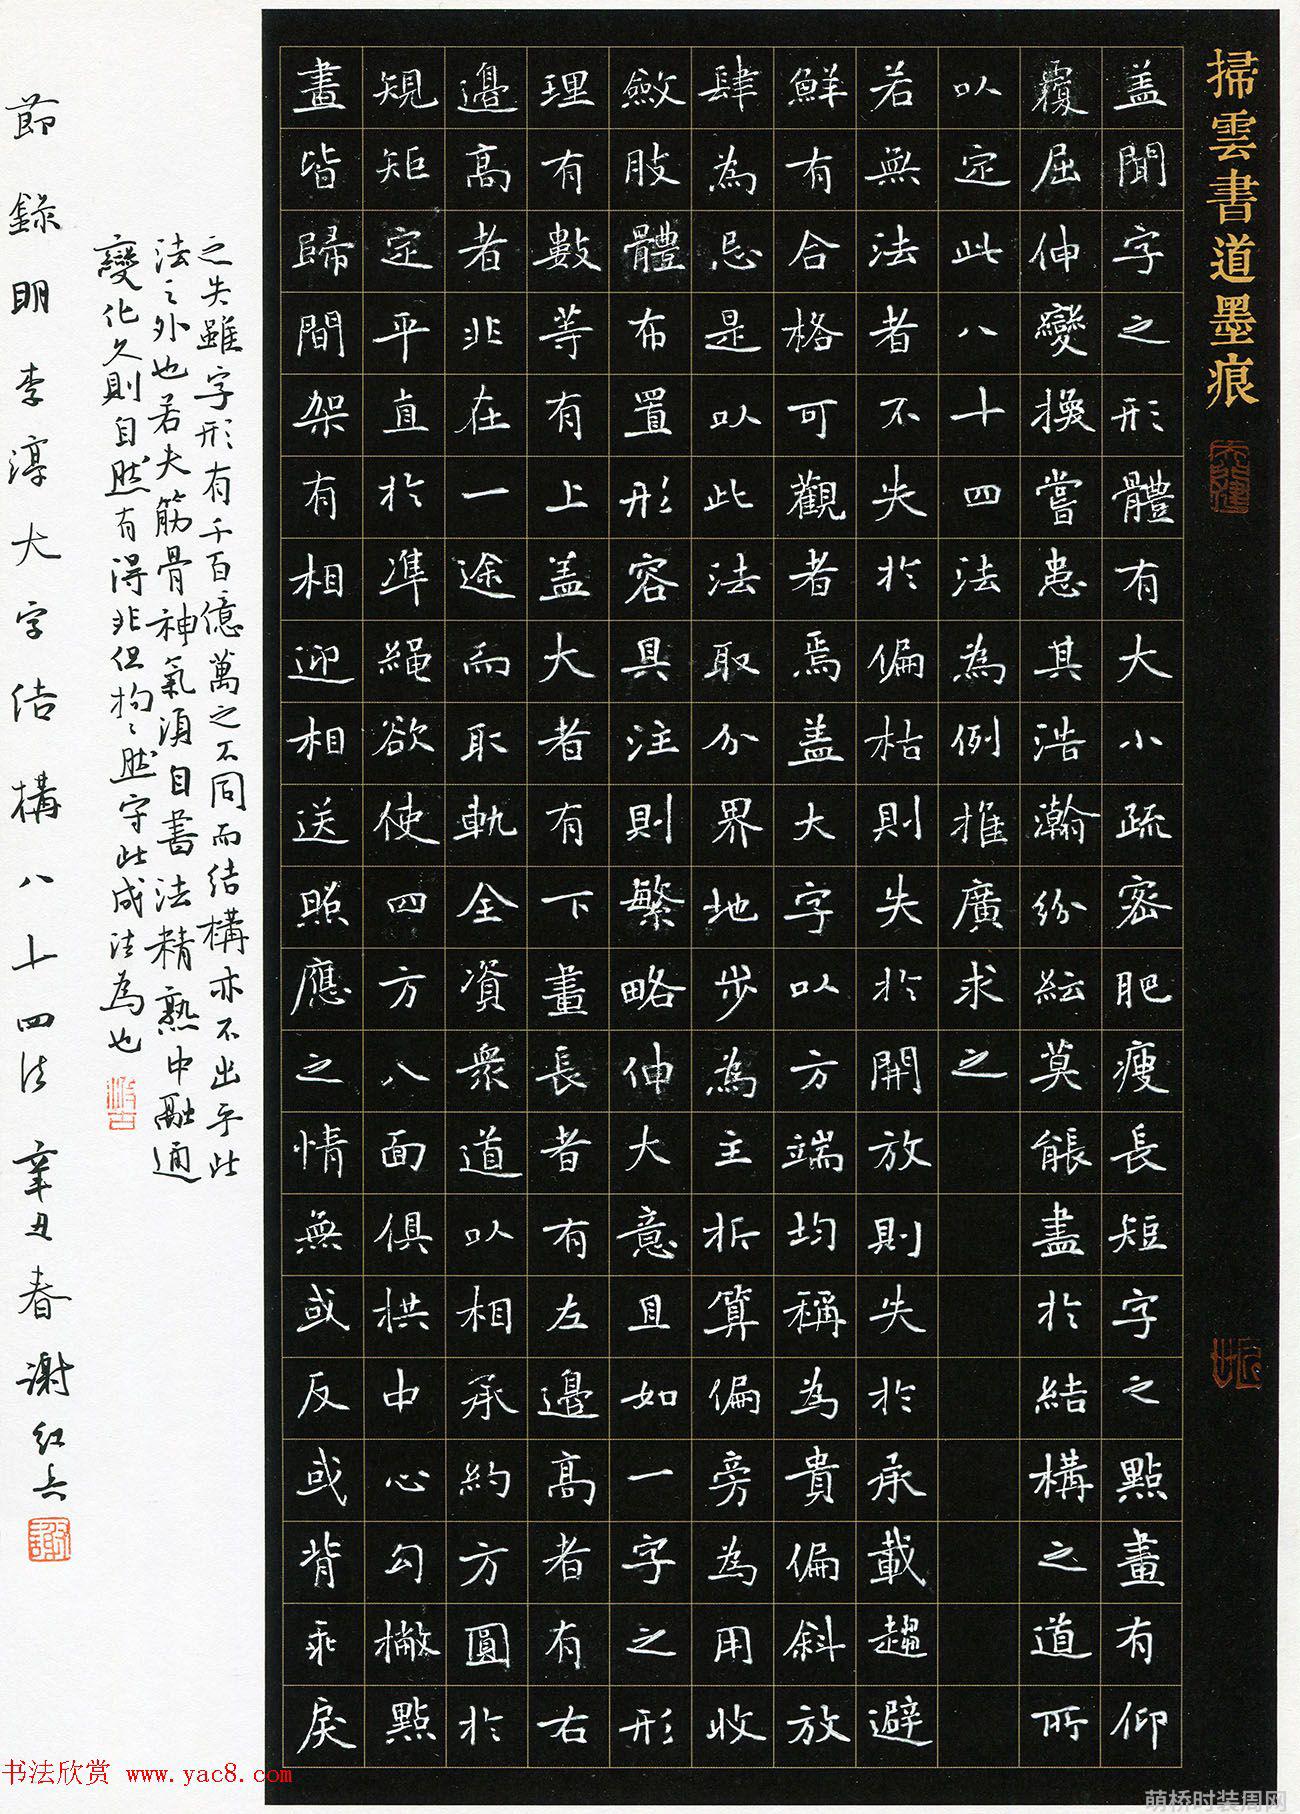 掃雲書道墨痕
盖聞字之形體有大小疏密肥瘦長短字之點畫有仰
覆屈伸變換嘗患其浩瀚紛紜莫能盡於結構之道所
以定此八十四法為例推廣求之
若無法者不失於偏枯則失於開放則失於承載趨避
鮮有合格可觀者焉盖大字以方端均稱為貴偏斜放
肆為忌是以此法取分界地步為主折算偏旁為用收
斂肢體布置形容具注則繁略伸大意且如一字之形
理有數等有上盖大者有下畫長者有左邊高者有右
邊高者非在一途而取軌全資衆道以相承約方圓於
規矩定平直於準繩欲使四方八面俱拱中心勾撇點
畫皆歸間架有相迎相送照應之情無或反或背乖戾
之失雖字形有千百億萬之不同而結構亦不出乎此
法之外也若夫筋骨神氣須自書法精熟中融通
變化久則自然有得非但拘〻然守此成法為也
節錄明李淳大字結構八十四法辛丑春謝紅兵
书法欣赏 www.yac8.com
萌桥时装周网